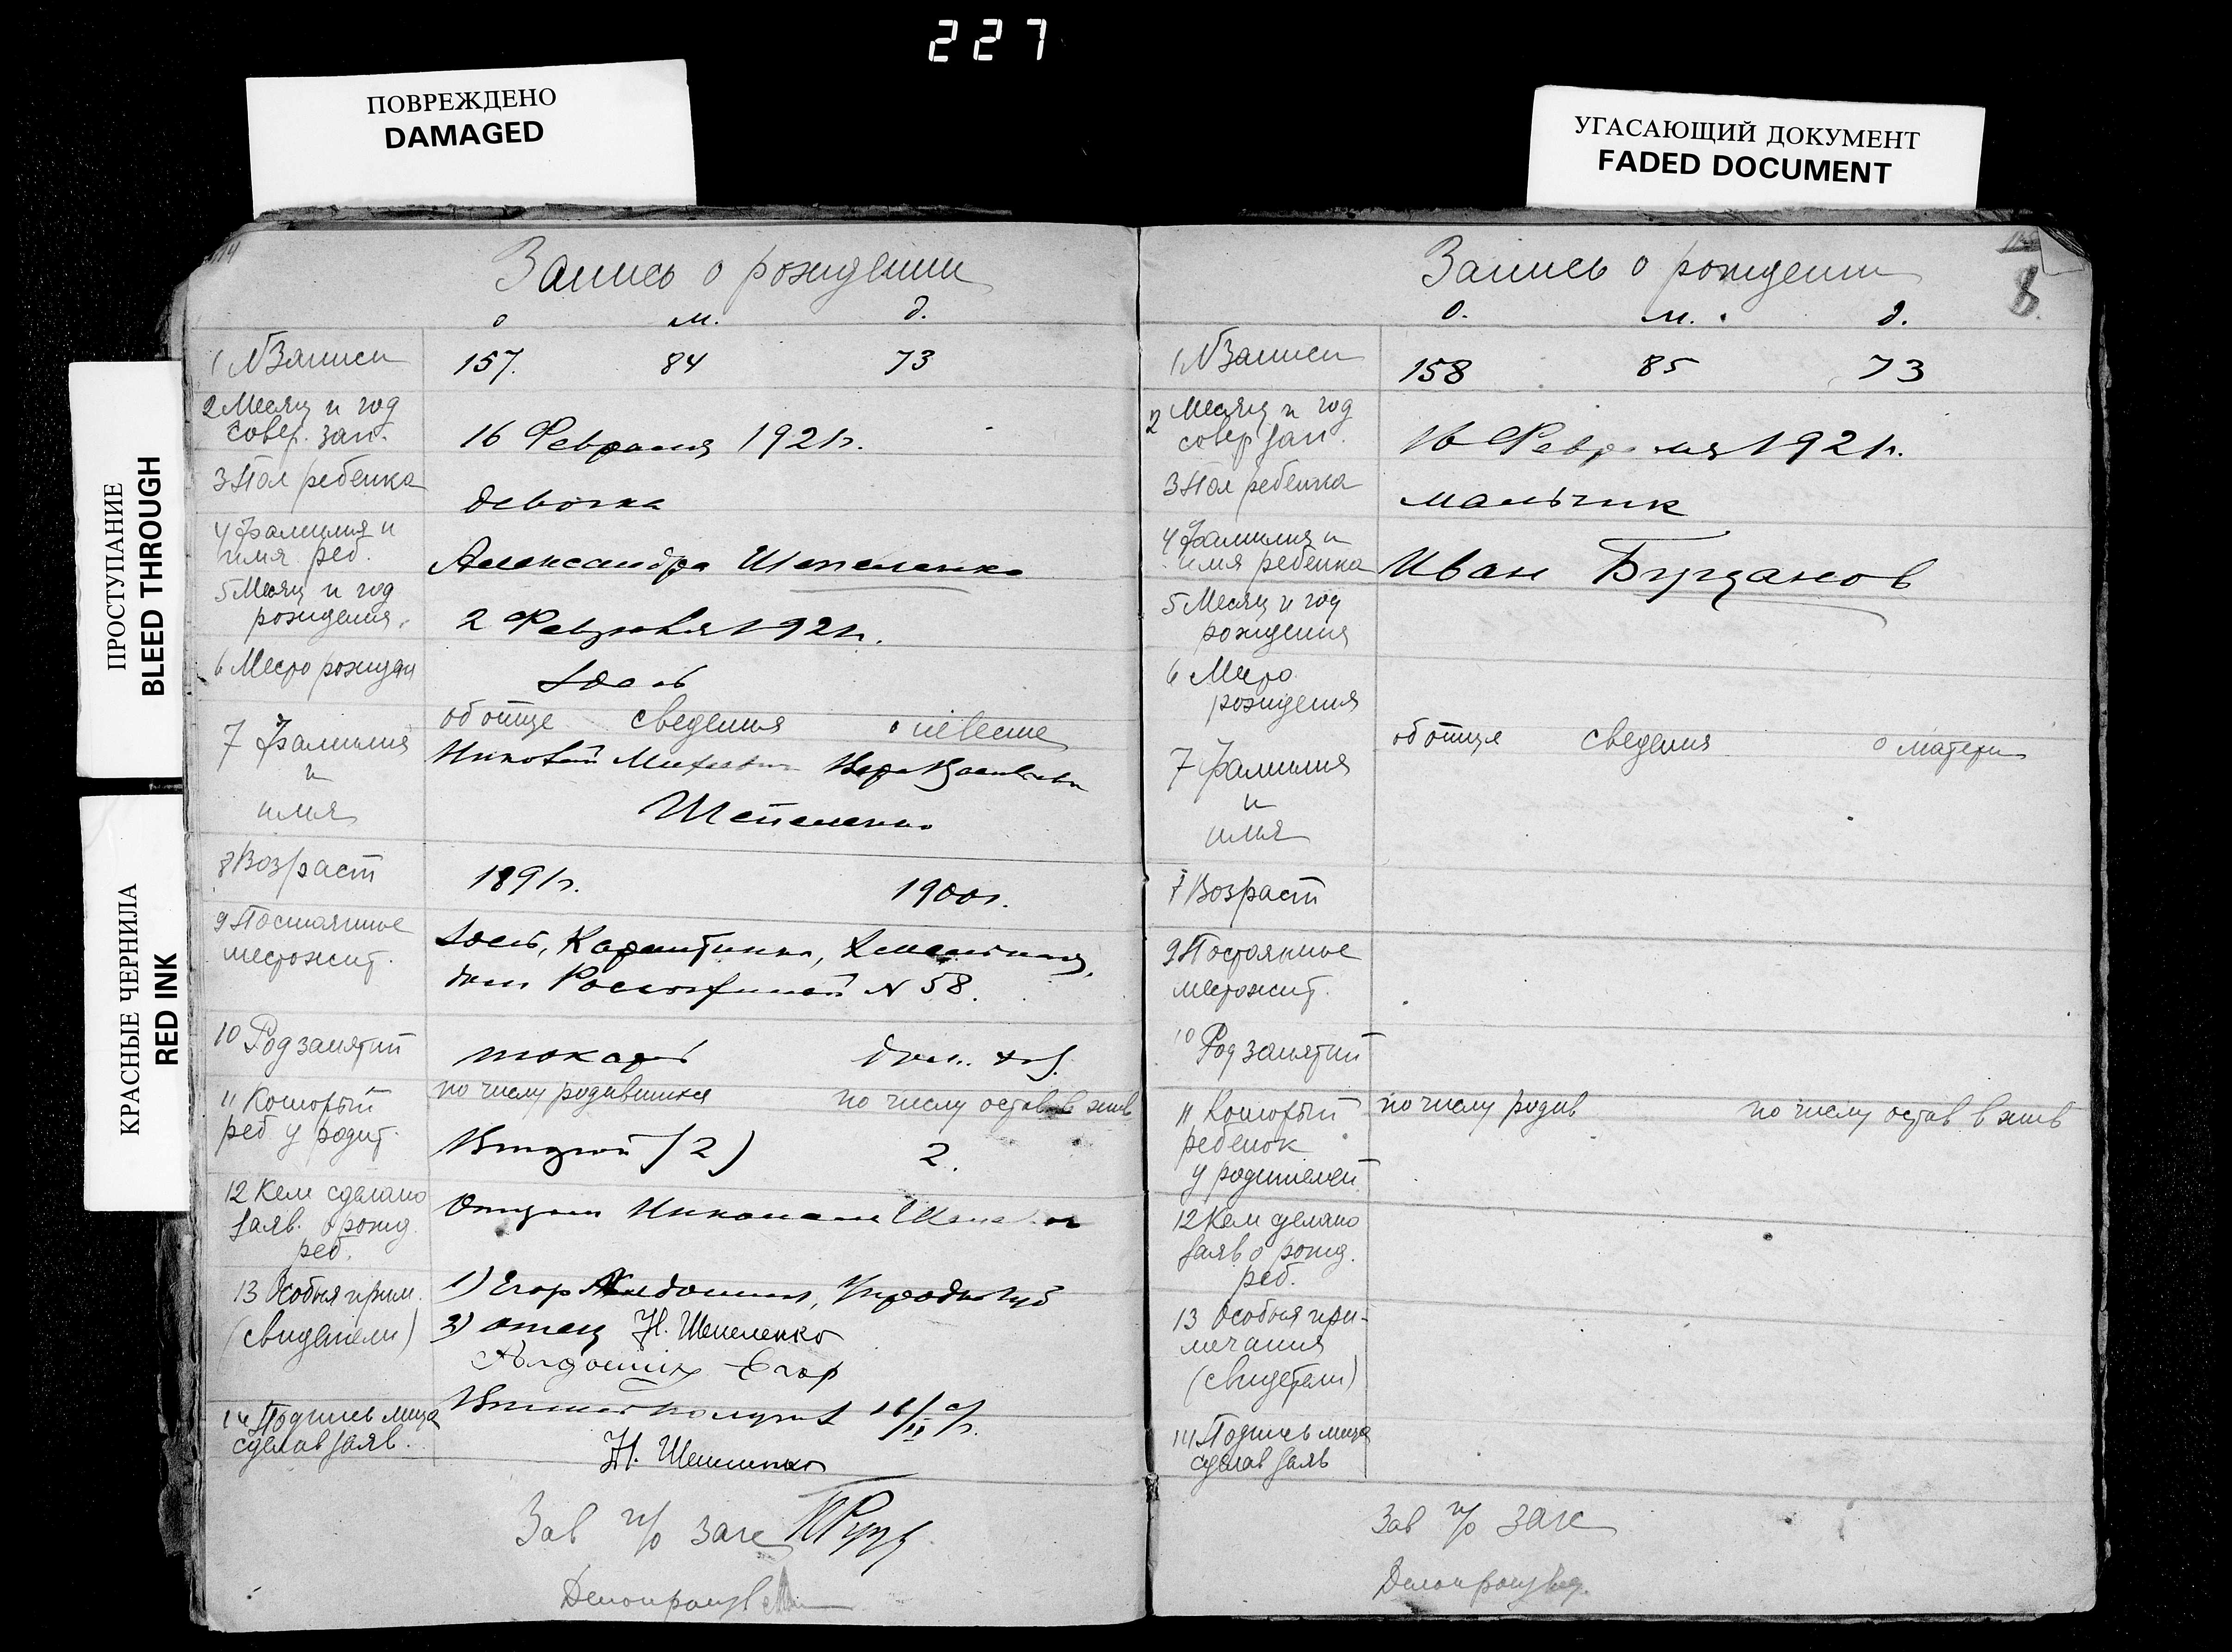 227
ПОВРЕЖДЕНО
DAMAGED
УГАСАЮЩИЙ ДОКУМЕНТ
FADED DOCUMENT
ПРОСТУПАНИЕ
BLEED THROUGH
КРАСНЫЕ ЧЕРНИЛА
RED INK
Запись о рождении
о м. д.
1 № Записи 157. 84 73
2 Месяц и год
совер. зап. 16 Февраля 1921 г.
3 Пол ребенка девочка
4 Фамилия и
имя реб. Александра Шепеленко
5 Месяц и год
рождения. 2 Февраля 1921 г.
6 Место рожден
об отце сведения о невесте
7 Фамилия
и
имя
Николай Вера
Шепеленко
8 Возраст 1891 г. 1900 г.
9 Постоянное
местожит.
дом № 58.
10 Род занятий токарь дом. хоз.
11 Который
реб у родит.
по числу родившихся по числу остав в жив
Второй (2) 2.
12 Кем сделано
заяв. о рожд.
реб.
Отцом Николаем
13 Особыя прим.
(свидетели)
1) Егор
2) отец Н. Шепеленко
Егор
14 Подпись лица
сделав заяв.
16/II с/г.
Н. Шепеленко
Зав п/о загс
Делопроизв
Запись о рождении
о. м. д.
1 № Записи 158 85 73
2 Месяц и год
совер зап. 16 Февраля 1921 г.
3 Пол ребенка мальчик
4 Фамилия и
имя ребенка Иван Бурдаков
5 Месяц и год
рождения
6 Место
рождения
об отце сведения о матери
7 Фамилия
и
имя
7 Возраст
9 Постоянное
местожит.
10 Род занятий
11 Который
ребенок
у родителей
по числу родив по числу остав в жив
12 Кем сделано
заяв о рожд.
реб.
13 Особыя при-
мечания
(свидетели)
14 Подпись лица
сделав заяв
Зав п/о загс
Делопроизвод.